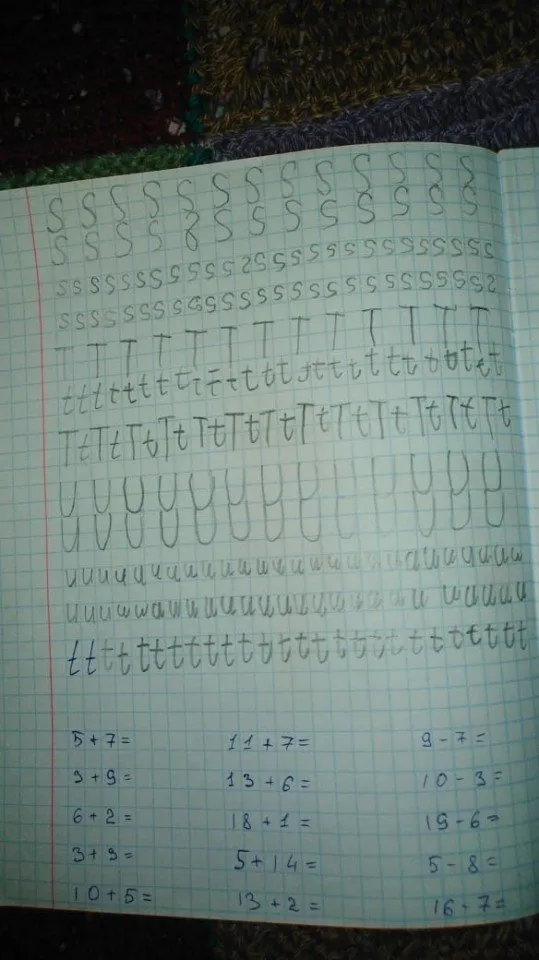 S S S S S S S S S S S S S
S S S S S S S S S S S S S
s s s s s s s s s s s s s s s s s s s s s s s s s s
s s s s s s s s s s s s s s s s s s s s s s s s s s
T T T T T T T T T T T T T
t t t t t t t t t t t t t t t t t t t t t t t t t t
T t T t T t T t T t T t T t T t T t T t T t T t T t
U U U U U U U U U U U U U
U U U U U U U U U U U U U
u u u u u u u u u u u u u u u u u u u u u u u u u u
u u u u u u u u u u u u u u u u u u u u u u u u u
t t t t t t t t t t t t t t t t t t t t t t t t t t
5 + 7 = 11 + 7 = 9 - 7 =
3 + 9 = 13 + 6 = 10 - 3 =
6 + 2 = 18 + 1 = 19 - 6 =
3 + 3 = 5 + 14 = 5 - 8 =
10 + 5 = 13 + 2 = 16 - 7 =